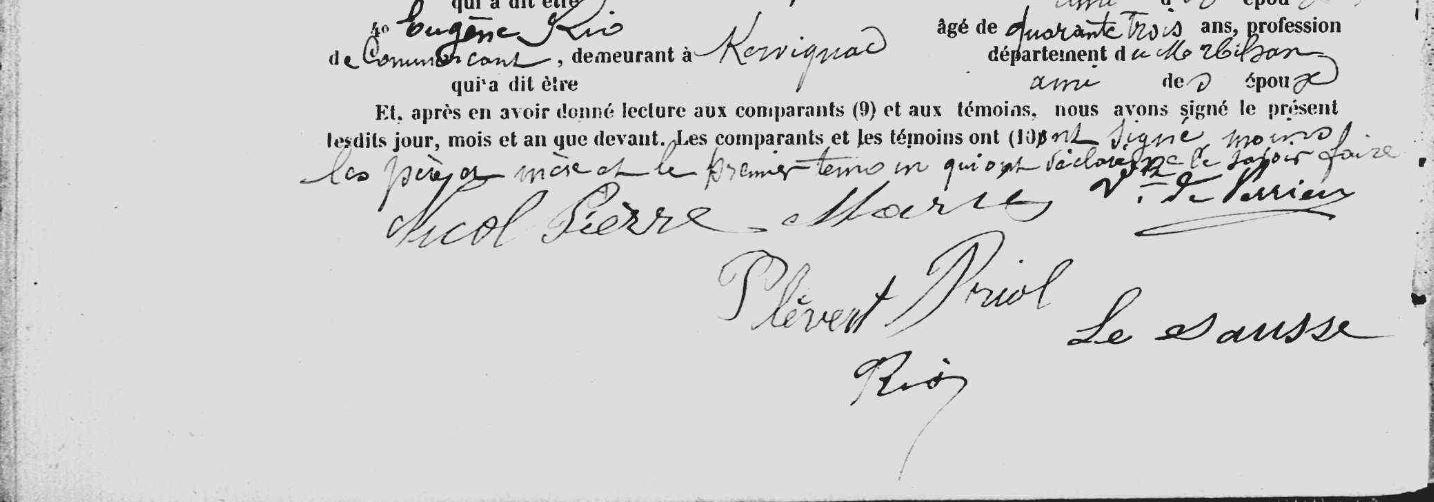 qui a dit être ami épou
4o Eugène Rio âgé de quarante trois ans, profession
de Commerçant, demeurant à Kervignac département du Morbihan
qui a dit être ami des époux
Et, après en avoir donné lecture aux comparants (9) et aux témoins, nous avons signé le présent
lesdits jour, mois et an que devant. Les comparants et les témoins ont (10) ont signé moins
les père et mère et le premier témoin qui ont déclaré ne le savoir faire
Nicol Pierre Marie Vte de Perrien
Plévert Priol
Le Dausse
Rio